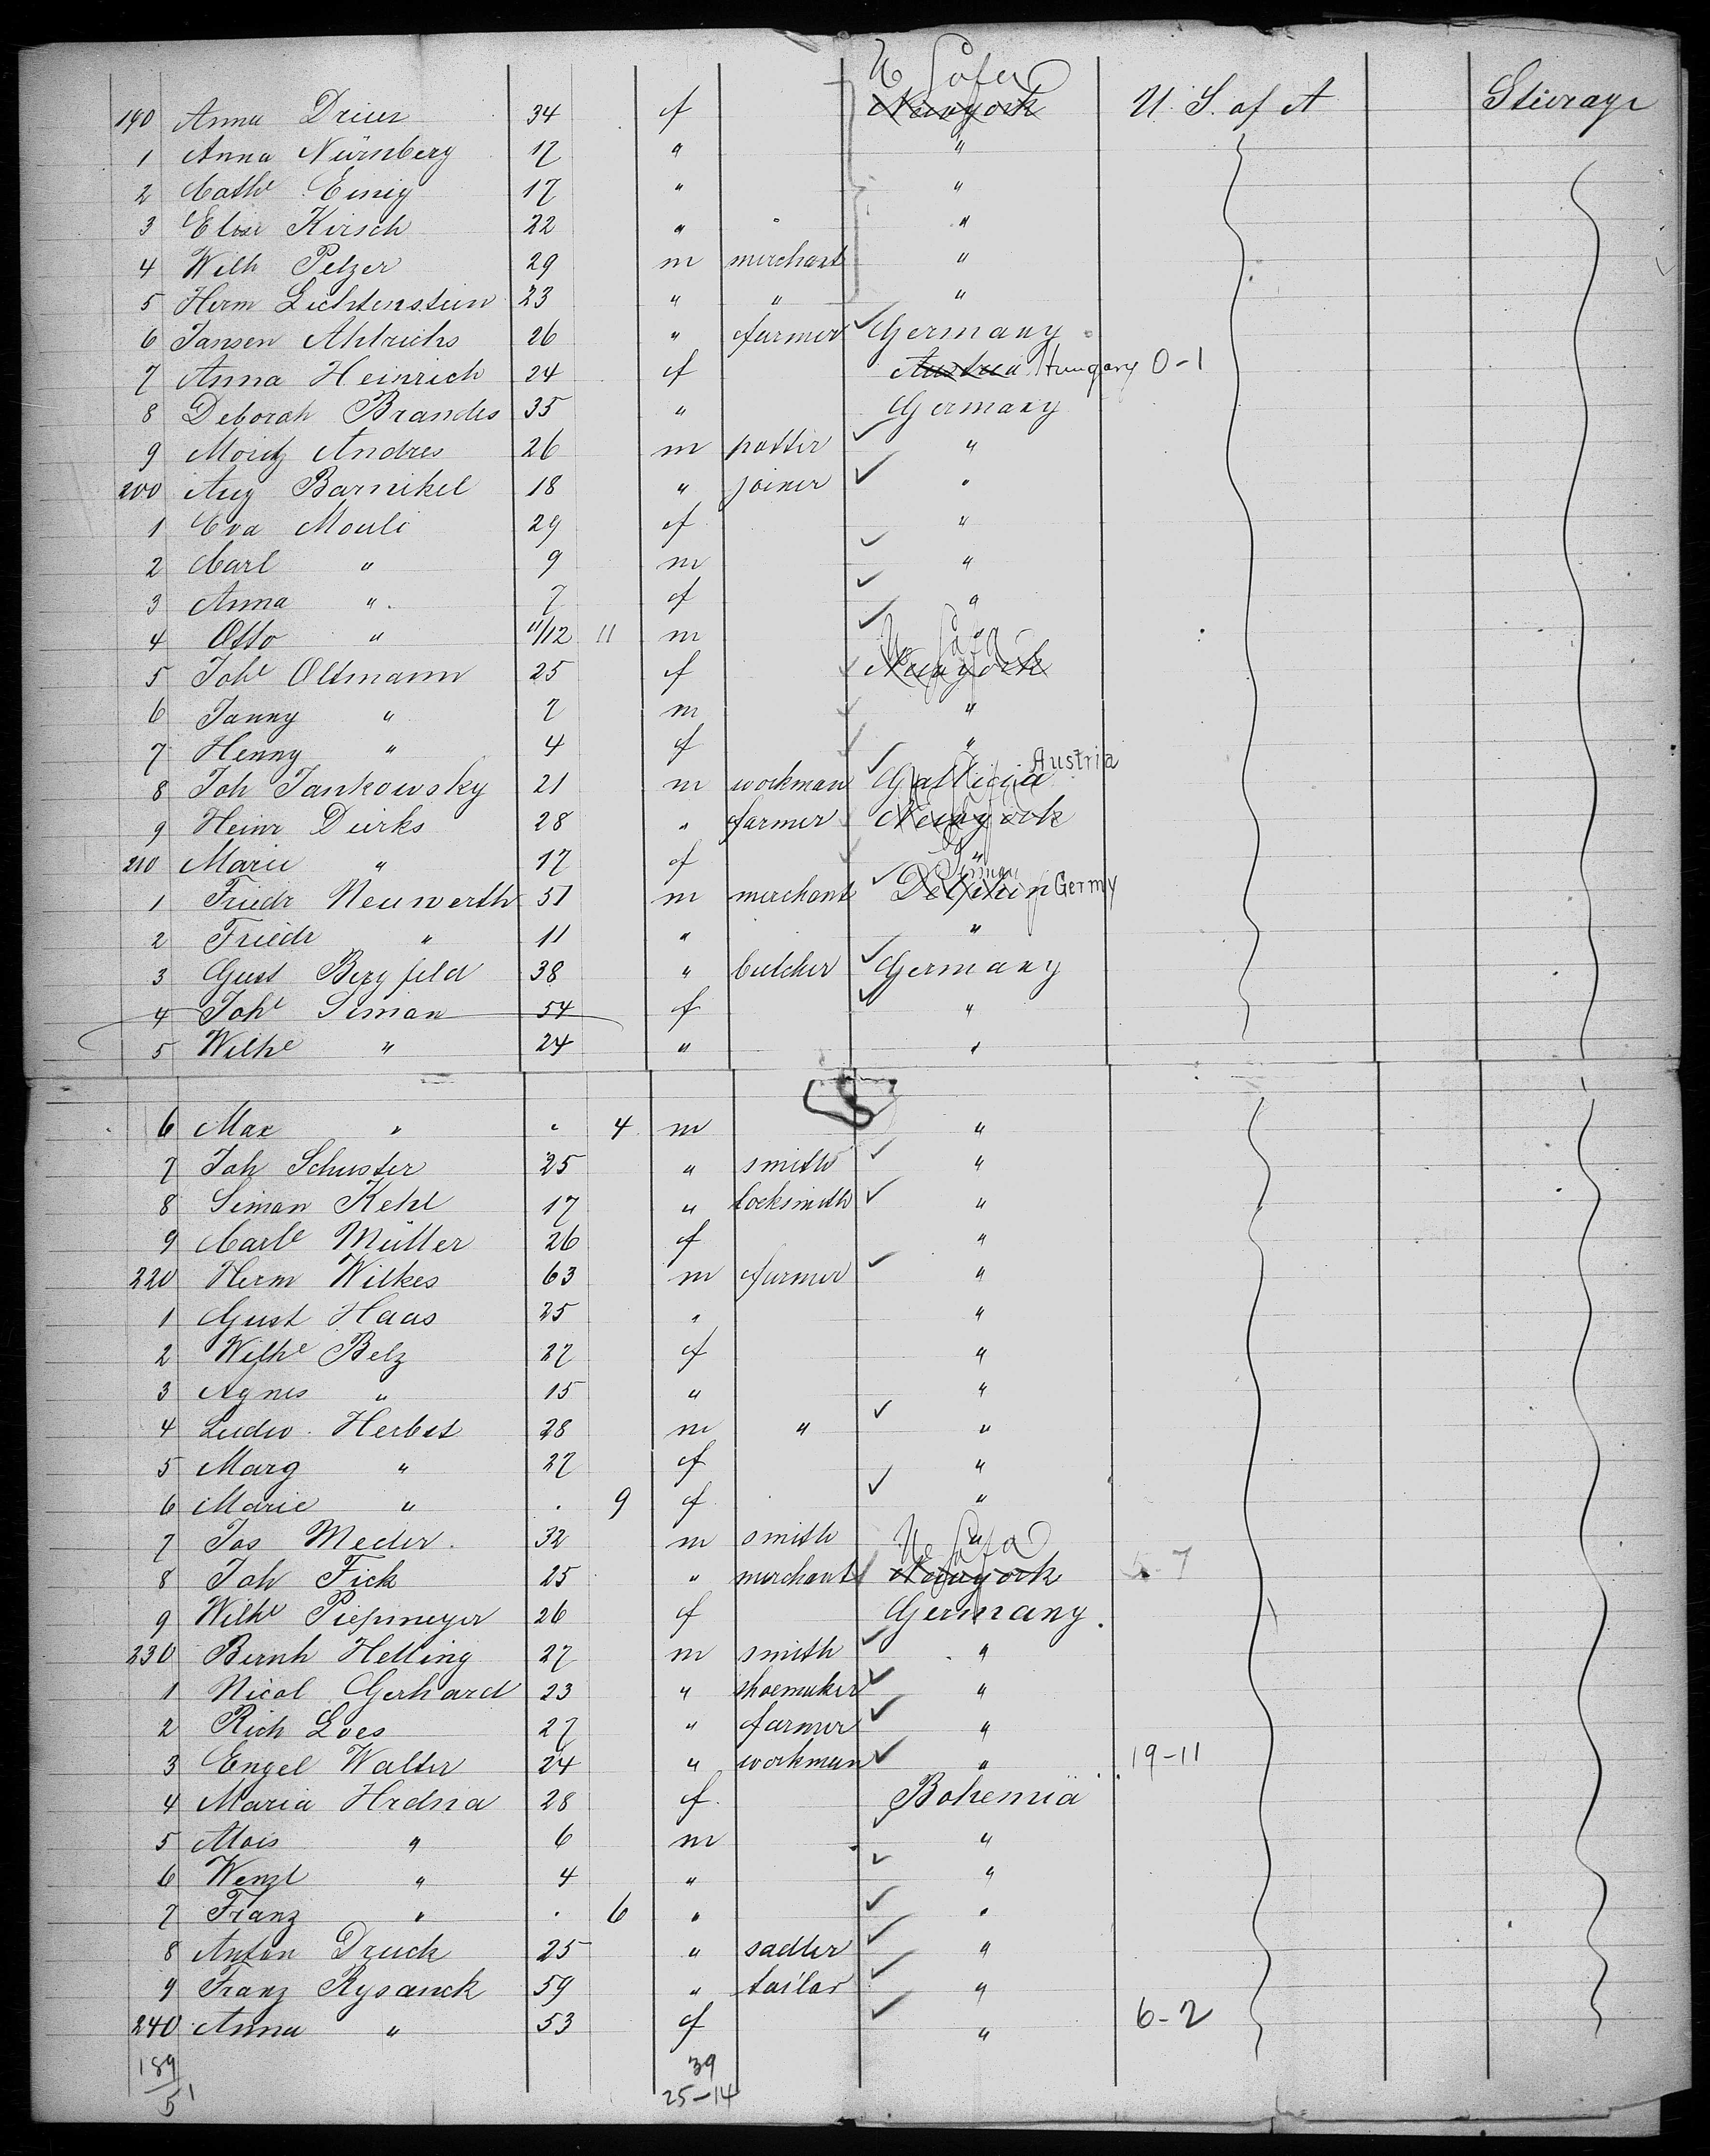 U S of A
190 Anna Drier 34 f Newyork U. S. of A Steerage
1 Anna Nürnberg 17 " "
2 Cathe Einig 17 " "
3 Elise Kirsch 22 " " "
4 Wilh Pelzer 29 m merchant "
5 Herm Lichtenstein 23 " " "
6 Jansen Ahlrichs 26 " farmer Germany
7 Anna Heinrich 24 f Austria Hungary 0-1
8 Deborah Brandes 35 " Germany
9 Moritz Andres 26 m potter "
200 Aug Barnikel 18 " joiner "
1 Eva Mouli 29 f "
2 Carl " 9 m "
3 Anna " 7 f "
4 Otto " 11/12 11 m "
U S of A
5 Johe Oltmann 25 f Newyork
6 Janny " 7 m "
7 Henny " 4 f "
Austria
8 Joh Jankowsky 21 m workman Gallicia
9 Heinr Dirks 28 " farmer Newyork
210 Marie " 17 f "
1 Friedr Neuwerth 51 m merchant Germy
2 Friedr " 11 " "
3 Gust Bergfeld 38 " butcher Germany
4 Johe Siman 54 f "
5 Wilhe " 24 " "
6 Max " " 4 m "
7 Joh Schuster 25 " smith "
8 Siman Kehl 17 " locksmith "
9 Carle Müller 26 f "
220 Herm Wilkes 63 m farmer "
1 Gust Haas 25 " "
2 Wilhe Belz 27 f "
3 Agnes " 15 " "
4 Ludw. Herbst 28 m " "
5 Marg " 27 f "
6 Marie " . 9 f "
7 Jos Meder. 32 m smith "
U S of A
8 Joh Fick 25 " merchant Newyork 5-7
9 Wilhe Piepmeyer 26 f Germany.
230 Bernh Helling 27 m smith "
1 Nicol Gerhard 23 " shoemaker "
2 Rich Loes 27 " farmer "
3 Engel Walter 24 " workman " 19-11
4 Maria Hrdna 28 f. Bohemia
5 Alois " 6 m "
6 Wenzl " 4 " "
7 Franz " . 6 " "
8 Anton Druck 25 " sadler "
9 Franz Rysanek 59 " tailor "
240 Anna " 53 f " 6-2
189 39
51 25-14